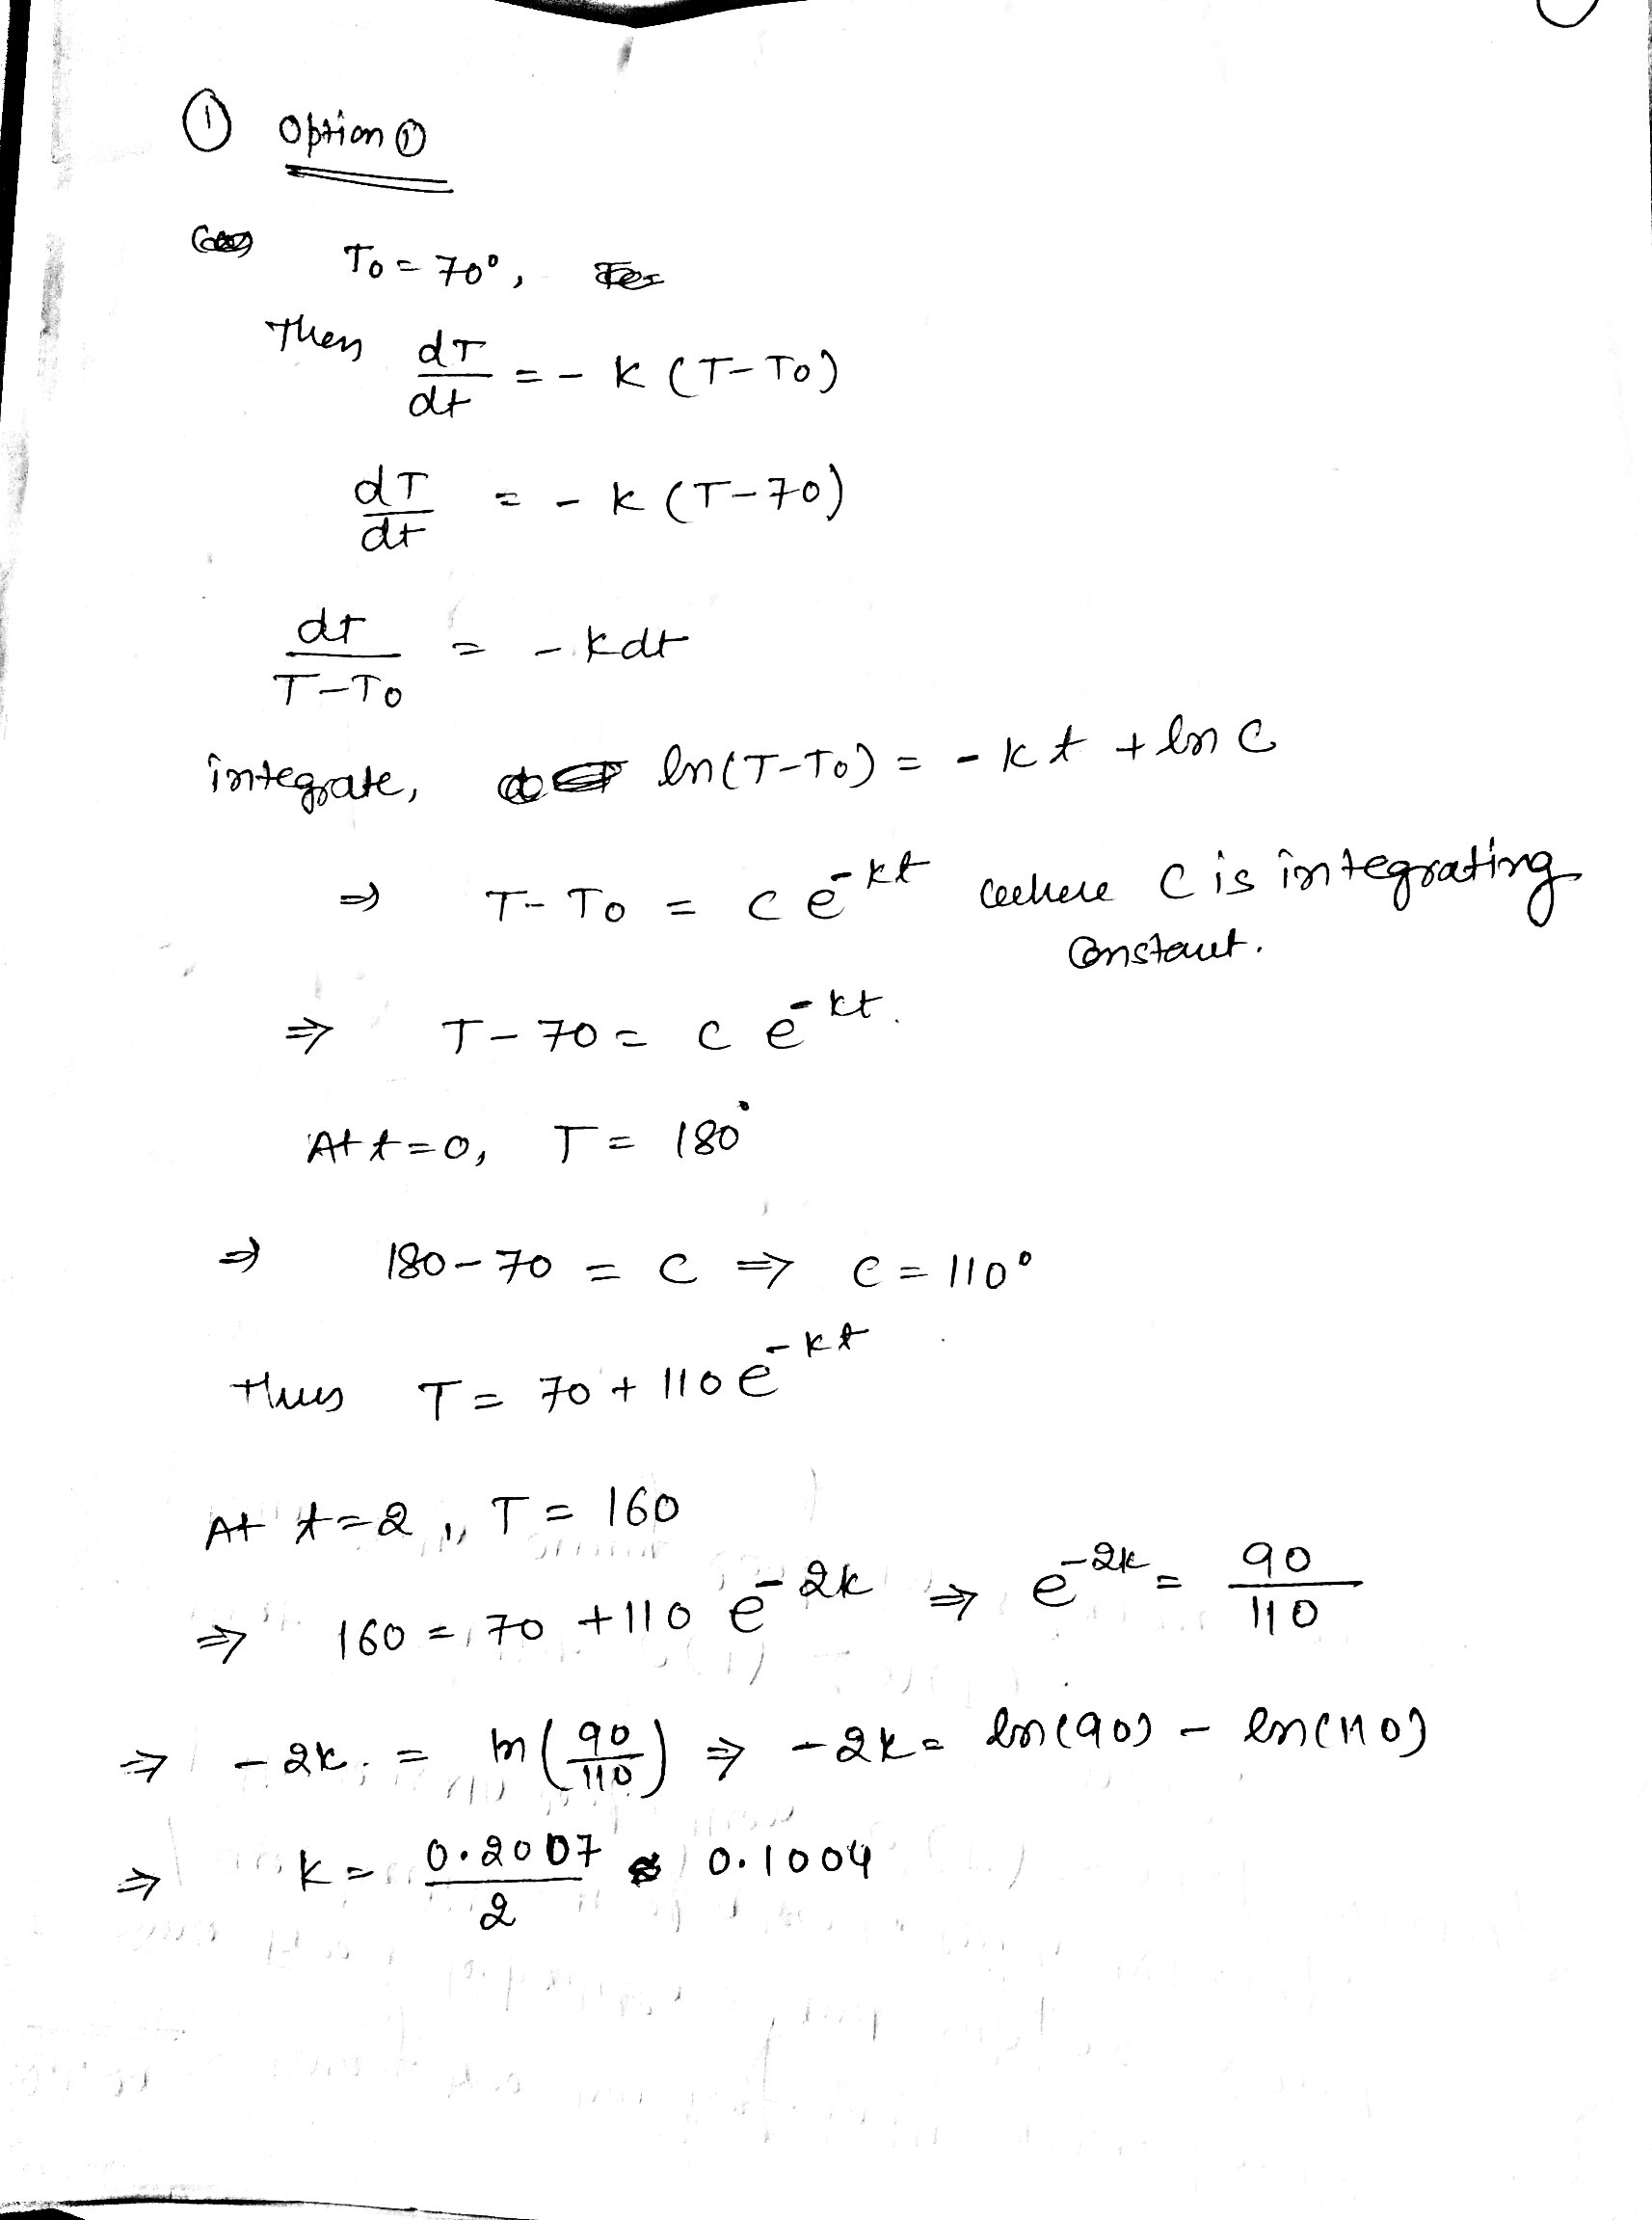 ① Option ①
T₀ = 70°,
Then dT/dt = - K (T-T₀)
dT/dt = - K (T-70)
dT/T-T₀ = - Kdt
integrate, ln(T-T₀) = - Kt + ln C
⇒ T-T₀ = C e^-Kt where C is integrating
Constant.
⇒ T-70 = C e^-Kt.
At t=0, T = 180°
⇒ 180-70 = C ⇒ C = 110°
Thus T = 70 + 110 e^-Kt
At t=2, T = 160
⇒ 160 = 70 + 110 e^-2K ⇒ e^-2K = 90/110
⇒ -2K = ln(90/110) ⇒ -2K = ln(90) - ln(110)
⇒ K = 0.2007/2 ≈ 0.1004